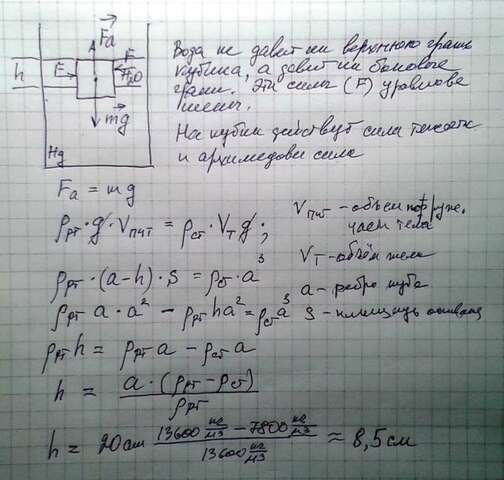 Fa
Вода не давит на верхнюю грань
кубика, а давит на боковые
грани. Эти силы (F) уравнове
шены.
h
F
F
H2O
mg
На кубик действует сила тяжести
и архимедова сила
Hg
Fa = mg
ρрт · g · Vпчт = ρст · Vт g ;
Vпчт - объем погруже.
части тела
Vт - объём тела
ρрт · (a - h) · S = ρст · a³
a - ребро куба
ρрт a · a² - ρрт h a² = ρст a³
S - площадь основан
ρрт h = ρрт a - ρст a
h = a · (ρрт - ρст) / ρрт
h = 20см (13600 кг/м3 - 7800 кг/м3) / 13600 кг/м3 ≈ 8,5см